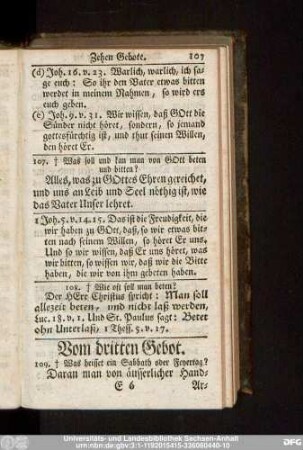 Zehen Gebote. 107
(d) Joh. 16. v. 23. Warlich, warlich, ich sa-
ge euch: So ihr den Vater etwas bitten
werdet in meinem Nahmen, so wird ers
euch geben.
(e) Joh. 9. v. 31. Wir wissen, daß GOtt die
Sünder nicht höret, sondern, so jemand
gottesfürchtig ist, und thut seinen Willen,
den höret Er.
107. † Was soll und kan man von GOtt beten
und bitten?
Alles, was zu GOttes Ehren gereichet,
und uns an Leib und Seel nöthig ist, wie
das Vater Unser lehret.
1 Joh. 5. v. 14. 15. Das ist die Freudigkeit, die
wir haben zu GOtt, daß, so wir etwas bit-
ten nach seinem Willen, so höret Er uns.
Und so wir wissen, daß Er uns höret, was
wir bitten, so wissen wir, daß wir die Bitte
haben, die wir von ihm gebeten haben.
108. † Wie oft soll man beten?
Der HErr Christus spricht: Man soll
allezeit beten, und nicht laß werden,
Luc. 18. v. 1. Und St. Paulus sagt: Betet
ohn Unterlaß, 1 Thess. 5. v. 17.
Vom dritten Gebot.
109. † Was heisset ein Sabbath oder Feyertag?
Daran man von äusserlicher Hand-
E 6 Ar-
Universitäts- und Landesbibliothek Sachsen-Anhalt
urn:nbn:de:gbv:3:1-1192015415-336060440-10
DFG